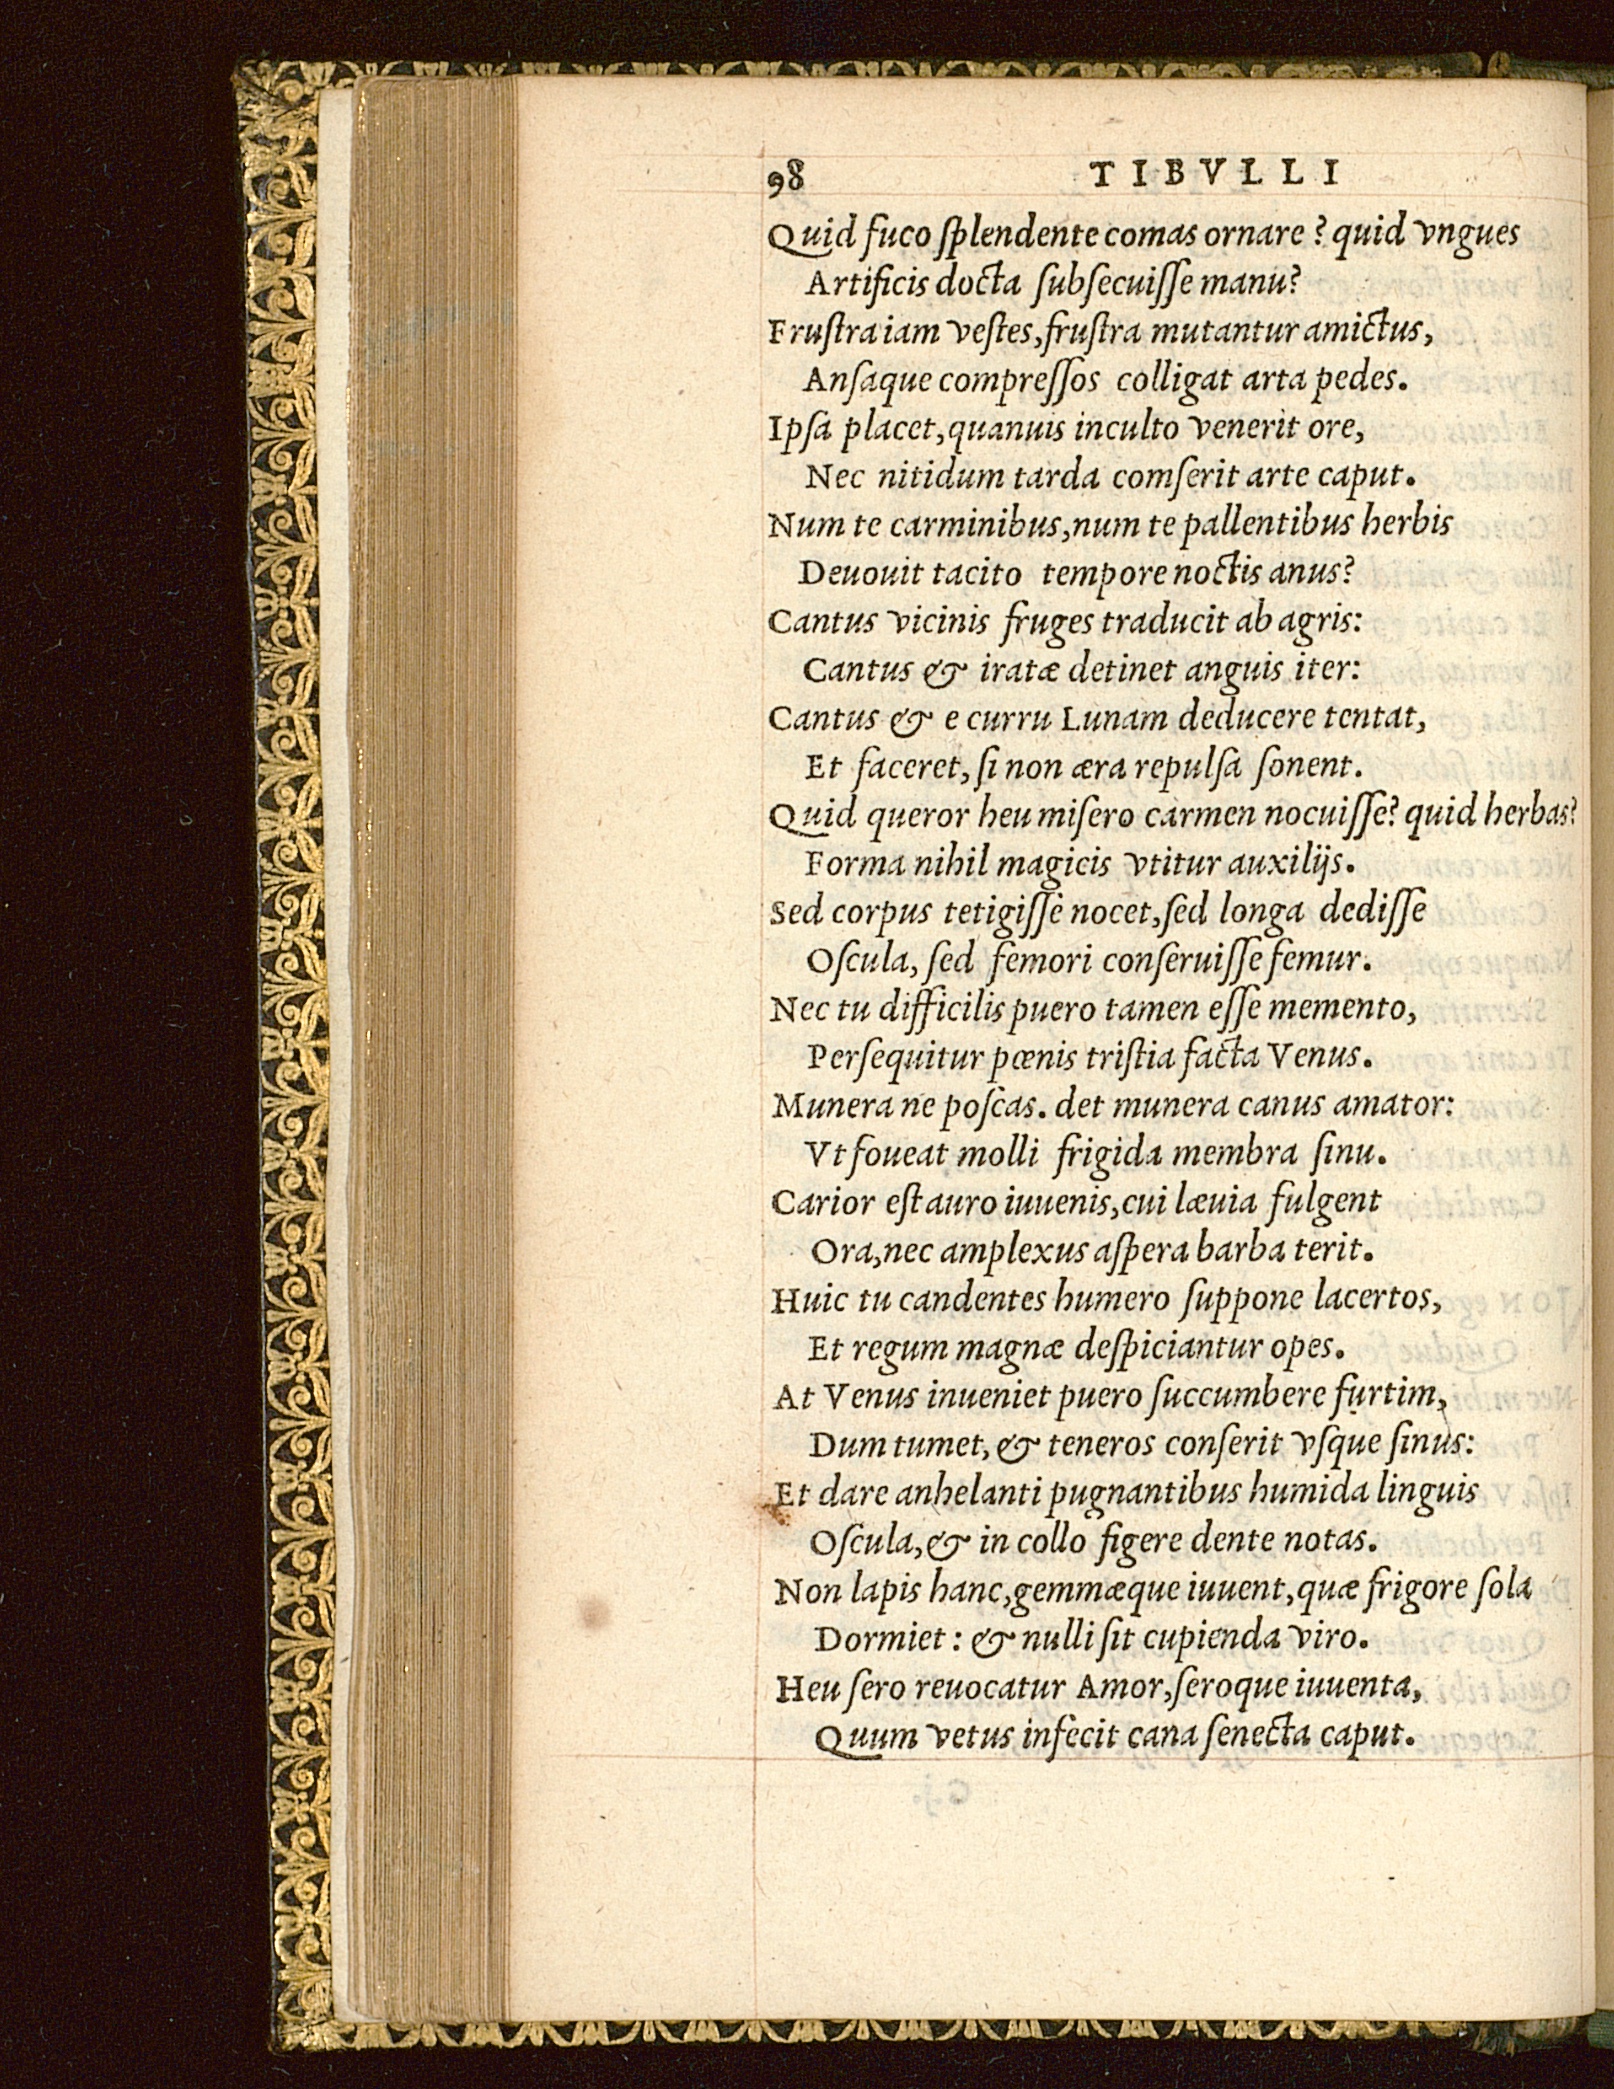 98 TIBVLLI
Quid fuco ſplendente comas ornare? quid vngues
Artificis docta ſubſecuiſſe manu?
Fruſtra iam veſtes, fruſtra mutantur amictus,
Anſaque compreſſos colligat arta pedes.
Ipſa placet, quanuis inculto venerit ore,
Nec nitidum tarda comſerit arte caput.
Num te carminibus, num te pallentibus herbis
Deuouit tacito tempore noctis anus?
Cantus vicinis fruges traducit ab agris:
Cantus & iratæ detinet anguis iter:
Cantus & e curru Lunam deducere tentat,
Et faceret, ſi non æra repulſa ſonent.
Quid queror heu miſero carmen nocuiſſe? quid herbas?
Forma nihil magicis vtitur auxilijs.
Sed corpus tetigiſſe nocet, ſed longa dediſſe
Oſcula, ſed femori conſeruiſſe femur.
Nec tu difficilis puero tamen eſſe memento,
Perſequitur pœnis triſtia facta Venus.
Munera ne poſcas. det munera canus amator:
Vt foueat molli frigida membra ſinu.
Carior eſt auro iuuenis, cui læuia fulgent
Ora, nec amplexus aſpera barba terit.
Huic tu candentes humero ſuppone lacertos,
Et regum magnæ deſpiciantur opes.
At Venus inueniet puero ſuccumbere furtim,
Dum tumet, & teneros conſerit vſque ſinus:
Et dare anhelanti pugnantibus humida linguis
Oſcula, & in collo figere dente notas.
Non lapis hanc, gemmæque iuuent, quæ frigore ſola
Dormiet: & nulli ſit cupienda viro.
Heu ſero reuocatur Amor, ſeroque iuuenta,
Quum vetus infecit cana ſenecta caput.